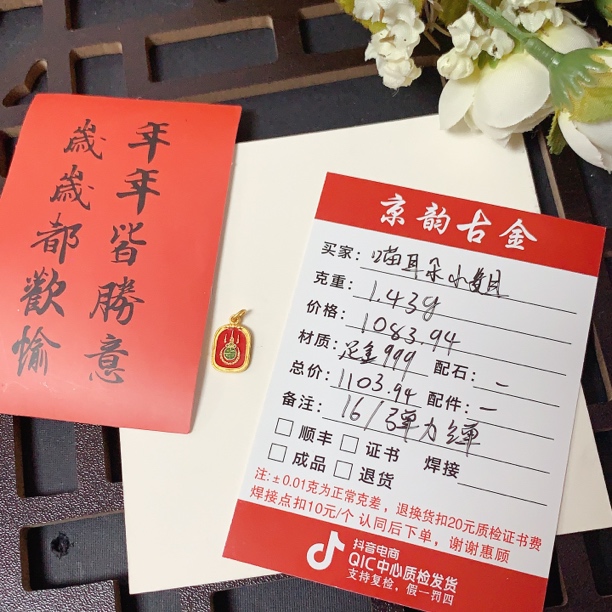 年年皆勝意
歲歲都歡愉
京韵古金
买家：喵耳朵小姐
克重：1.43g
价格：1083.94
材质：足金999 配石：—
总价：1103.94 配件：—
备注：16/弹力绳
顺丰 证书 焊接
成品 退货
注:±0.01克为正常克差，退换货扣20元质检证书费
焊接点扣10元/个 认同后下单，谢谢惠顾
抖音电商
QIC中心质检发货
支持复检，假一罚四